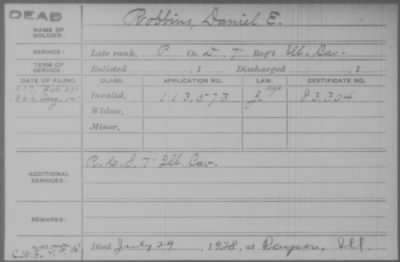 DEAD
NAME OF SOLDIER: Robbins, Daniel E.
SERVICE: Late rank, P Co. D, 7 Reg't Ill. Cav.
TERM OF SERVICE: Enlisted , 1 Discharged , 1
DATE OF FILING. CLASS. APPLICATION NO. LAW. CERTIFICATE NO.
Invalid, 113,573 83.304
Widow,
Minor,
ADDITIONAL SERVICES: 7 Ill Cav.
REMARKS:
Died July 29, 1928, at Ill.